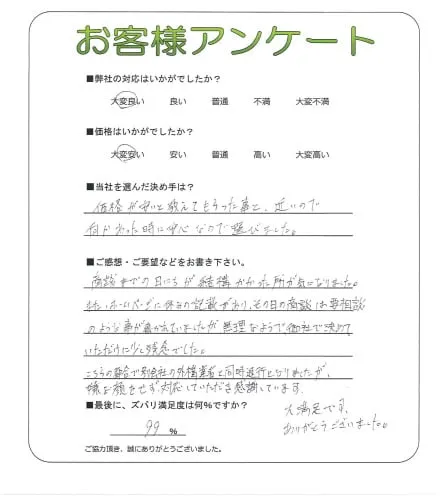 お客様アンケート
■弊社の対応はいかがでしたか?
大変良い 良い 普通 不満 大変不満
■価格はいかがでしたか?
大変安い 安い 普通 高い 大変高い
■当社を選んだ決め手は?
価格が安いと教えてもらった事と、近いので
何かあった時に安心なので選びました。
■ご感想・ご要望などをお書き下さい。
商談までの日にちが結構かかった所が気になりました。
また、ホームページに休みの記載があり、その日の商談は要相談
のような事が書かれていましたが無理なようで御社で決めて
いただけに少し残念でした。
こちらの都合で別会社の外構業者と同時進行となりましたが、
嫌な顔をせず対応していただき感謝しています。
■最後に、ズバリ満足度は何%ですか?
99 %
大満足です。
ありがとうございました。
ご協力頂き、誠にありがとうございました。